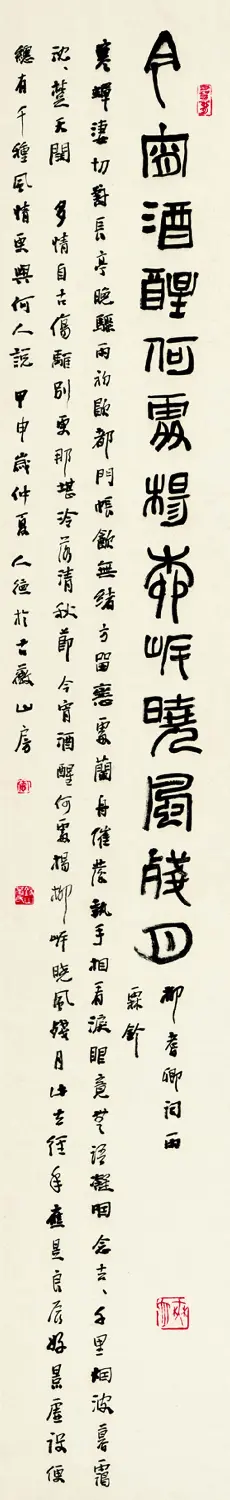 今宵酒醒何處楊柳岸曉風殘月
柳耆卿詞雨
霖鈴
寒蟬淒切對長亭晚驟雨初歇都門帳飲無緒方留戀處蘭舟催發執手相看淚眼竟無語凝咽念去、千里烟波暮靄
沈、楚天闊 多情自古傷離別更那堪冷落清秋節今宵酒醒何處楊柳岸曉風殘月此去經年應是良辰好景虛設便
總有千種風情更與何人說 甲申歲仲夏人徳於古藪山房